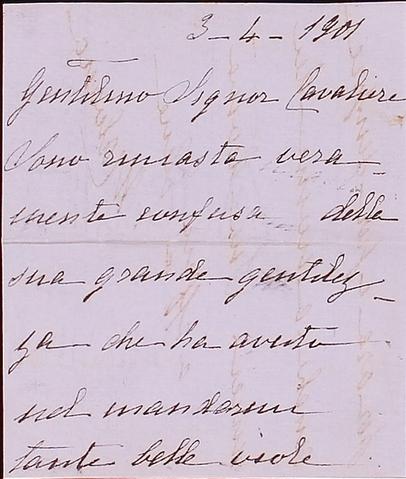 3-4-1901
Gentilmo Signor Cavaliere
Sono rimasta vera_
mente confusa della
sua grande gentilez_
za che ha avuto
nel mandarmi
tante belle viole.